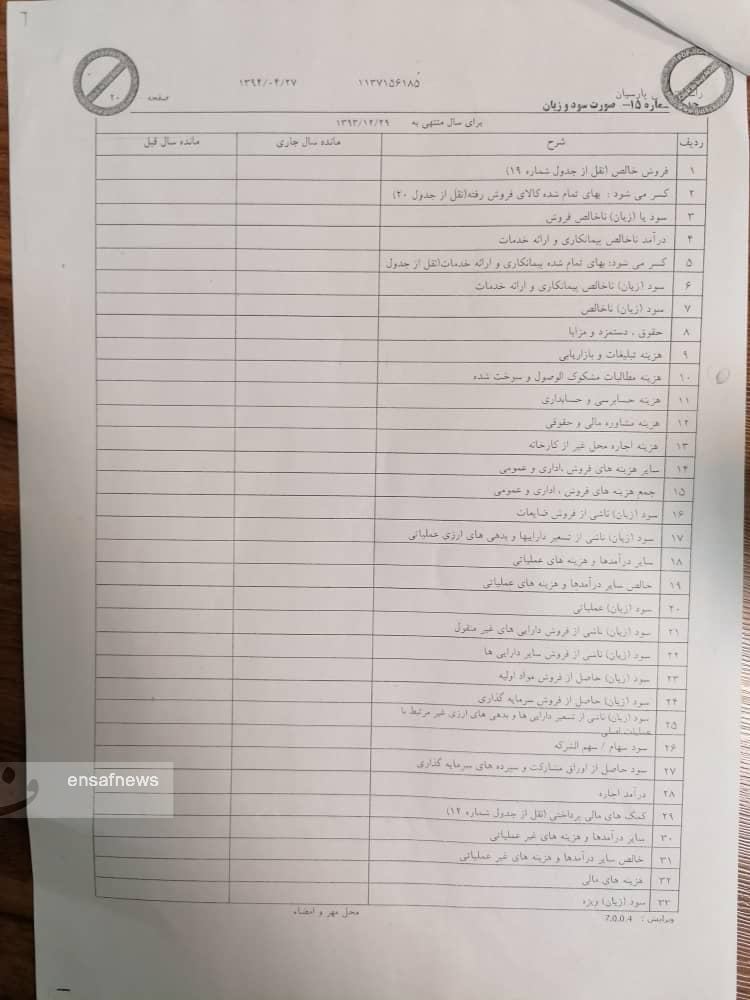 ۱۱۳۷۱۵۶۱۸۵ ۱۳۹۴/۰۴/۲۷
پارسیان صفحه ۲۰
۱۵- صورت سود و زیان
برای سال منتهی به ۱۳۹۳/۱۲/۲۹
ردیف شرح مانده سال جاری مانده سال قبل
۱ فروش خالص (نقل از جدول شماره ۱۹)
۲ کسر می شود : بهای تمام شده کالای فروش رفته(نقل از جدول ۲۰)
۳ سود یا (زیان) ناخالص فروش
۴ درآمد ناخالص پیمانکاری و ارائه خدمات
۵ کسر می شود: بهای تمام شده پیمانکاری و ارائه خدمات(نقل از جدول
۶ سود (زیان) ناخالص پیمانکاری و ارائه خدمات
۷ سود (زیان) ناخالص
۸ حقوق ، دستمزد و مزایا
۹ هزینه تبلیغات و بازاریابی
۱۰ هزینه مطالبات مشکوک الوصول و سوخت شده
۱۱ هزینه حسابرسی و حسابداری
۱۲ هزینه مشاوره مالی و حقوقی
۱۳ هزینه اجاره محل غیر از کارخانه
۱۴ سایر هزینه های فروش ،اداری و عمومی
۱۵ جمع هزینه های فروش ، اداری و عمومی
۱۶ سود (زیان) ناشی از فروش ضایعات
۱۷ سود (زیان) ناشی از تسعیر داراییها و بدهی های ارزی عملیاتی
۱۸ سایر درآمدها و هزینه های عملیاتی
۱۹ خالص سایر درآمدها و هزینه های عملیاتی
۲۰ سود (زیان) عملیاتی
۲۱ سود (زیان) ناشی از فروش دارایی های غیر منقول
۲۲ سود (زیان) ناشی از فروش سایر دارایی ها
۲۳ سود (زیان) حاصل از فروش مواد اولیه
۲۴ سود (زیان) حاصل از فروش سرمایه گذاری
۲۵ سود (زیان) ناشی از تسعیر دارایی ها و بدهی های ارزی غیر مرتبط با
عملیات اصلی
۲۶ سود سهام / سهم الشرکه
۲۷ سود حاصل از اوراق مشارکت و سپرده های سرمایه گذاری
۲۸ درآمد اجاره
۲۹ کمک های مالی پرداختی (نقل از جدول شماره ۱۴)
۳۰ سایر درآمدها و هزینه های غیر عملیاتی
۳۱ خالص سایر درآمدها و هزینه های غیر عملیاتی
۳۲ هزینه های مالی
۳۳ سود (زیان) ویژه
ویرایش : 7.0.0.4 محل مهر و امضاء
ensafnews